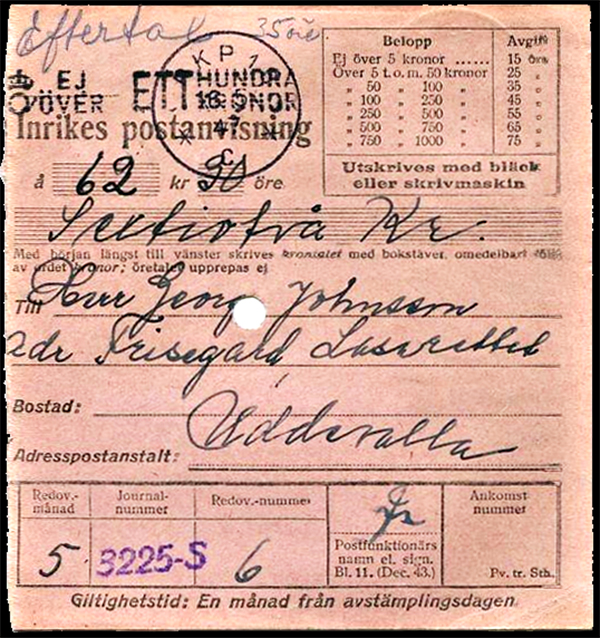 Eftertal 35 öre
Belopp Avgift
Ej över 5 kronor ...... 15 öre
Över 5 t. o. m. 50 kronor 25 „
„ 50 „ 100 „ 35 „
„ 100 „ 250 „ 45 „
„ 250 „ 500 „ 55 „
„ 500 „ 750 „ 65 „
„ 750 „ 1000 „ 75 „
Utskrives med bläck
eller skrivmaskin
KP 7
EJ ETT HUNDRA
ÖVER KRONOR
47
C
Inrikes postanvisning
å 62 kr 50 öre
Sextiotvå Kr.
Med början längst till vänster skrives krontalet med bokstäver, omedelbart följt
av ordet kronor; öretalet upprepas ej
Till Herr Georg Johnsson
adr Frisegård Lasarettet
Bostad:
Adresspostanstalt: Uddevalla
Redov.-
månad
Journal-
nummer
Redov.-nummer
Ankomst-
nummer
5 3225-S 6
Postfunktionärs
namn el. sign.
Bl. 11. (Dec. 43.)
Pv. tr. Sth.
Giltighetstid: En månad från avstämplingsdagen